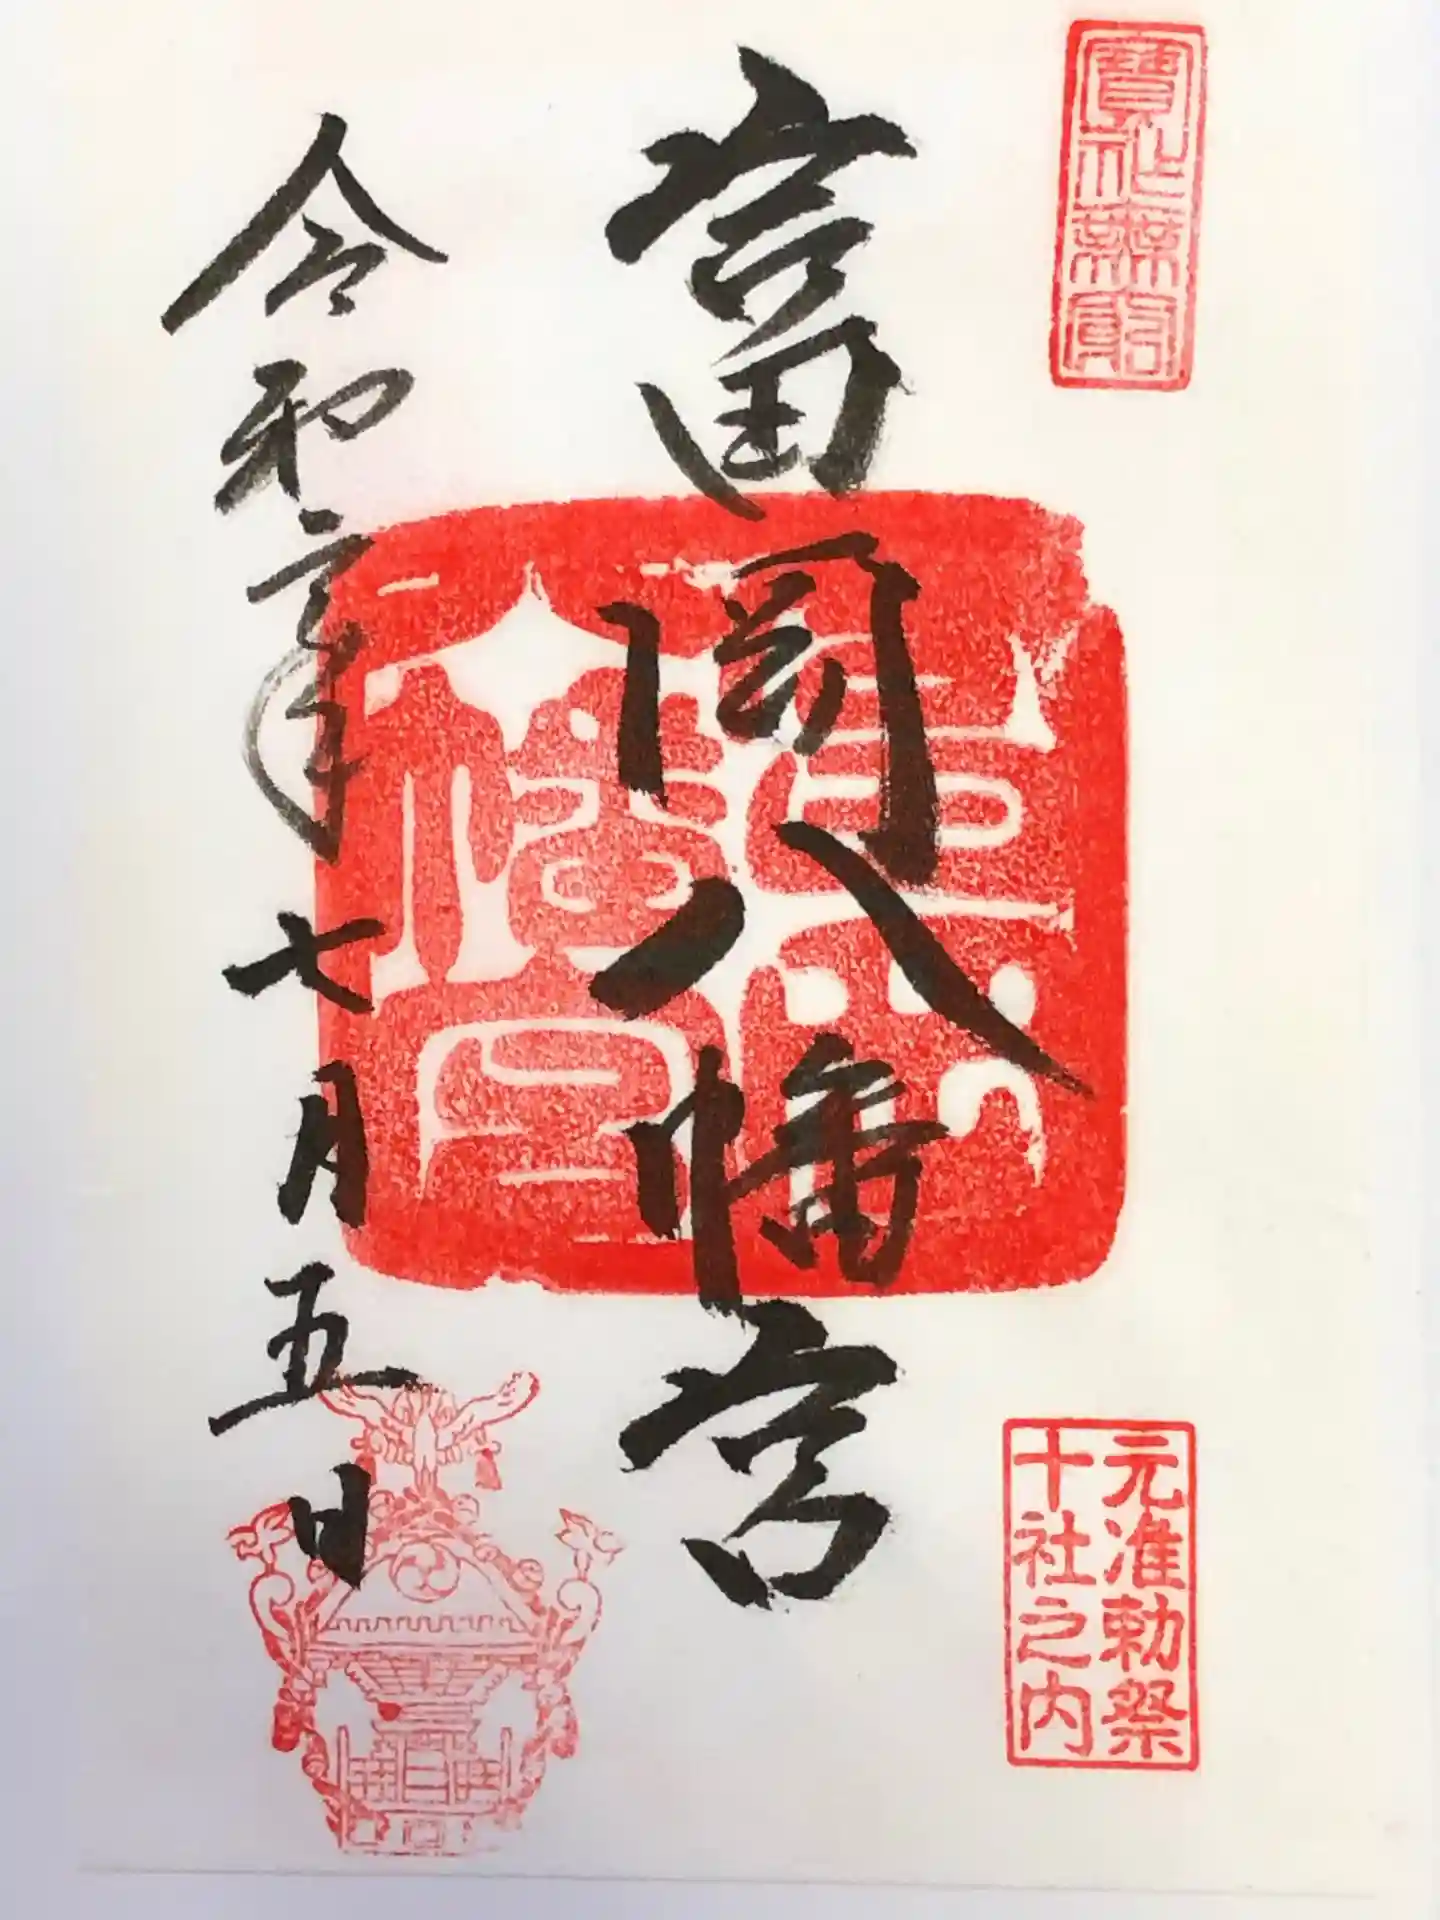 寶祚無窮
富岡八幡宮
令和二年七月五日
元准勅祭
十社之内